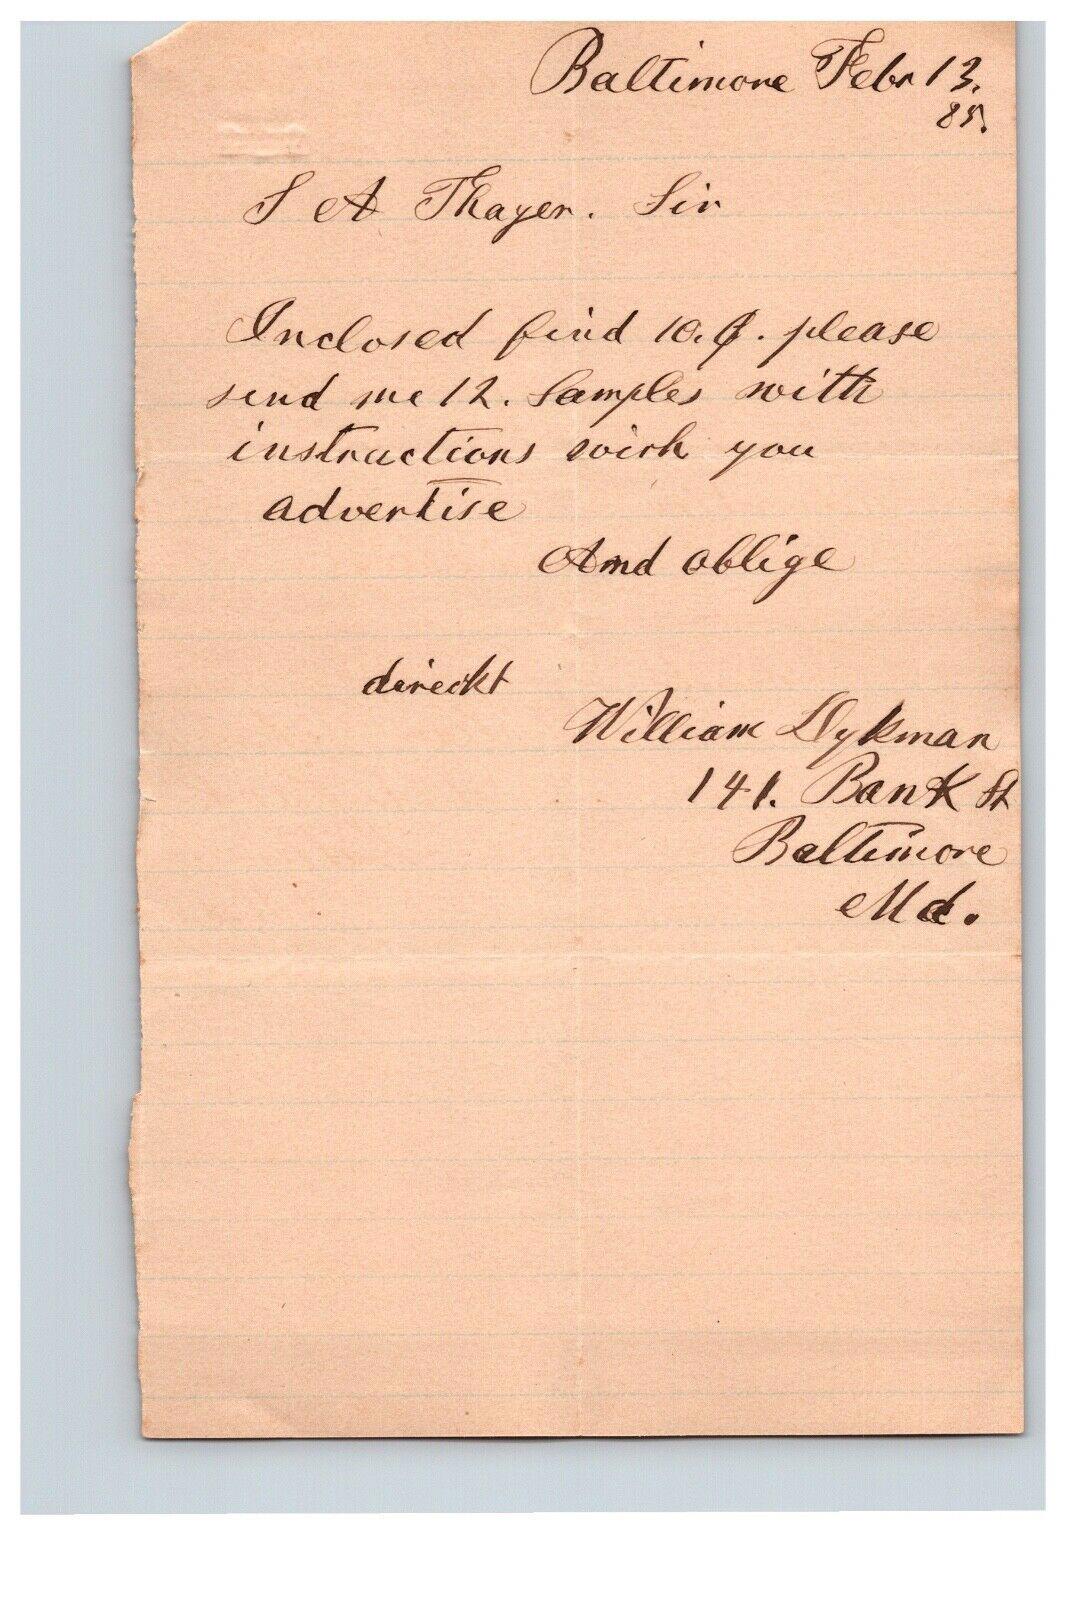 Baltimore Febr 13.
85.
S A Thayer. Sir
Inclosed find 10.¢. please
send me 12. Samples with
instructions wich you
advertise
And oblige
direckt
William Dykman
141. Bank St
Baltimore
Md.